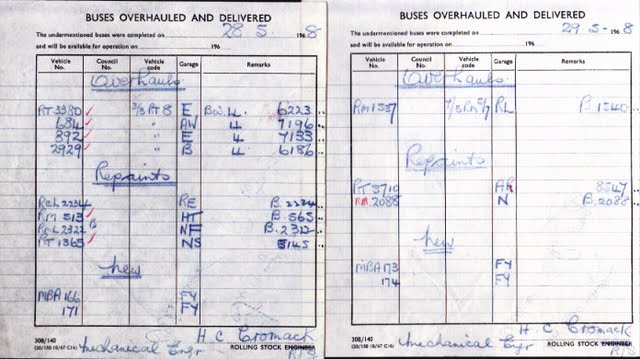 BUSES OVERHAULED AND DELIVERED
The undermentioned buses were completed on 28 5 1968
and will be available for operation on 196
Vehicle No. Council No. Vehicle code Garage Remarks
Overhauls
RT 3380 3/3 RT 8 E BW 4 6223
684 " AW 4 7196
892 " E 4 7133
2929 " B 4 6186
Repaints
RCL 2234 RE B.2234
RM 513 HT B.565
RCL 2322 B NF B.2312
RT 1365 NS 5145
New
MBA 166 FY
171 FY
H. C. Cromack
308/140
Mechanical Engr ROLLING STOCK ENGINEER
BUSES OVERHAULED AND DELIVERED
The undermentioned buses were completed on 29 5 1968
and will be available for operation on 196
Vehicle No. Council No. Vehicle code Garage Remarks
Overhauls
RM 1537 RL B 1540
Repaints
RT 3710 AR 8547
RM 2088 N B.2088
New
MBA 173 FY
174 FY
H. C. Cromack
308/140
Mechanical Engr ROLLING STOCK ENGINEER